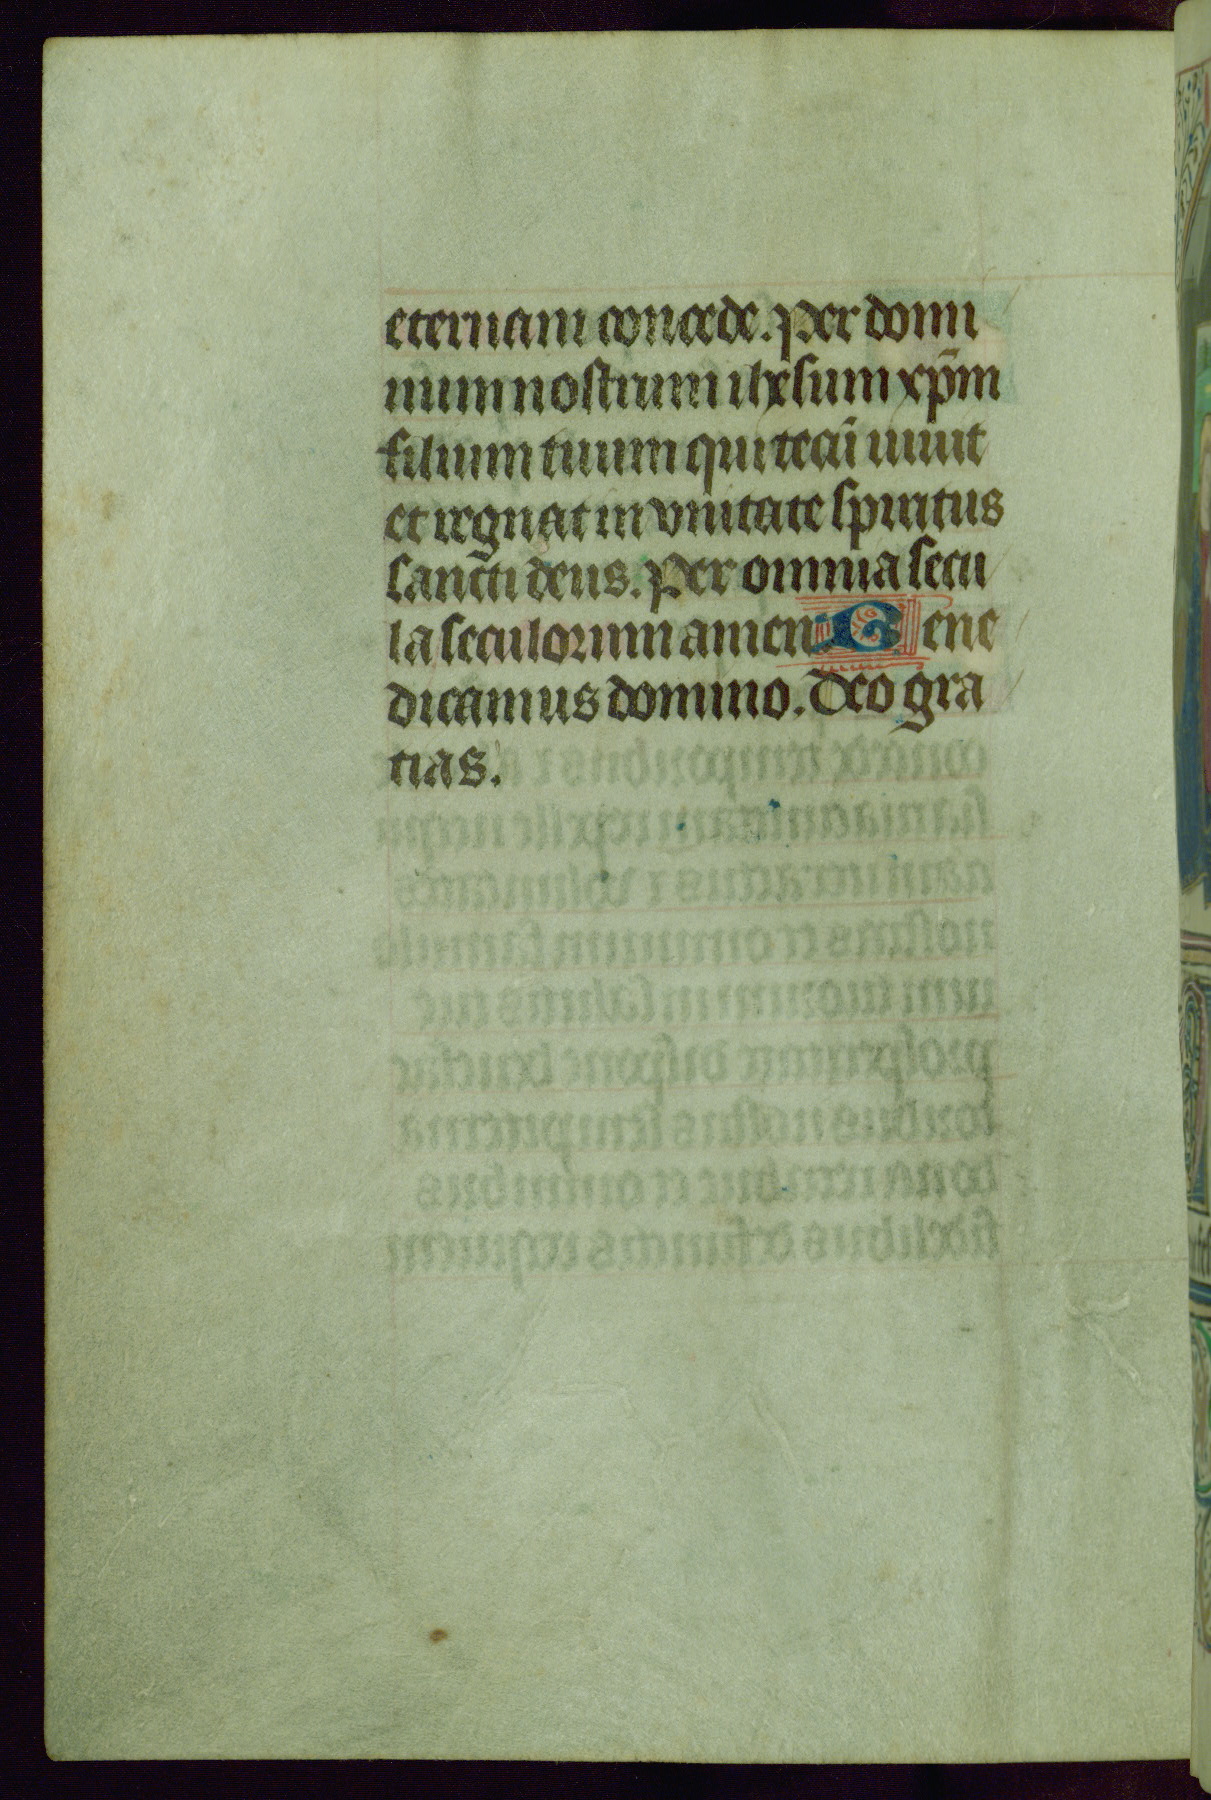 eternam concede. Per domi
num nostrum ihesum xp̄m
filium tuum qui tecū uiuit
et regnat in vnitate spiritus
sancti deus. Per omnia secu
la seculorum amen Bene
dicamus domino. Deo gra
tias.